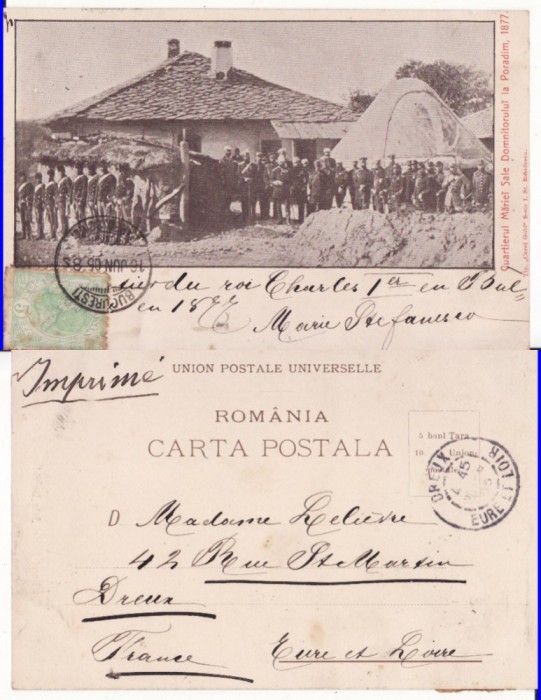 Quartierul Măriei Sale Domnitorului la Poradim, 1877.
16 JUN 05
BUCURESTI
du roi Charles 1er en Bul
en 1877
Marie Stefanesco
Imprimé
UNION POSTALE UNIVERSELLE
ROMÂNIA
CARTA POSTALA
5 bani Tara
10 Uniune
DREUX
EURE ET LOIR
D Madame Lelièvre
42 Rue St Martin
Dreux
France Eure et Loire